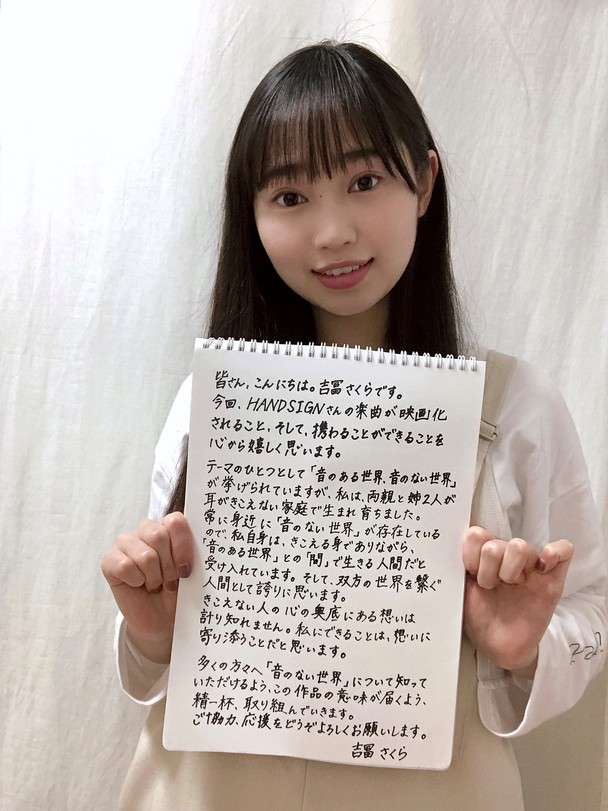 皆さん、こんにちは。吉冨さくらです。
今回、HANDSIGNさんの楽曲が映画化
されること、そして、携わることができることを
心から嬉しく思います。
テーマのひとつとして「音のある世界、音のない世界」
が挙げられていますが、私は、両親と姉2人が
耳がきこえない家庭で生まれ育ちました。
常に身近に「音のない世界」が存在している
ので、私自身は、きこえる身でありながら、
「音のある世界」との「間」で生きる人間だと
受け入れています。そして、双方の世界を繋ぐ
人間として誇りに思います。
きこえない人の心の奥底にある想いは
計り知れません。私にできることは、想いに
寄り添うことだと思います。
多くの方々へ「音のない世界」について知って
いただけるよう、この作品の意味が届くよう、
精一杯、取り組んでいきます。
ご協力、応援をどうぞよろしくお願いします。
吉冨 さくら